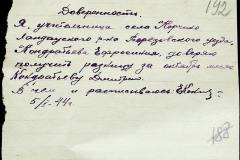 192
Доверенность
Я, учительница села Карлино
Ландауского р-на Березовского уезда,
Кондратьева Ефросиния, доверяю
получить разницу за октябрь месяц
Кондратьеву Дмитрию.
В чем и расписываюсь
5/I-44г.
188